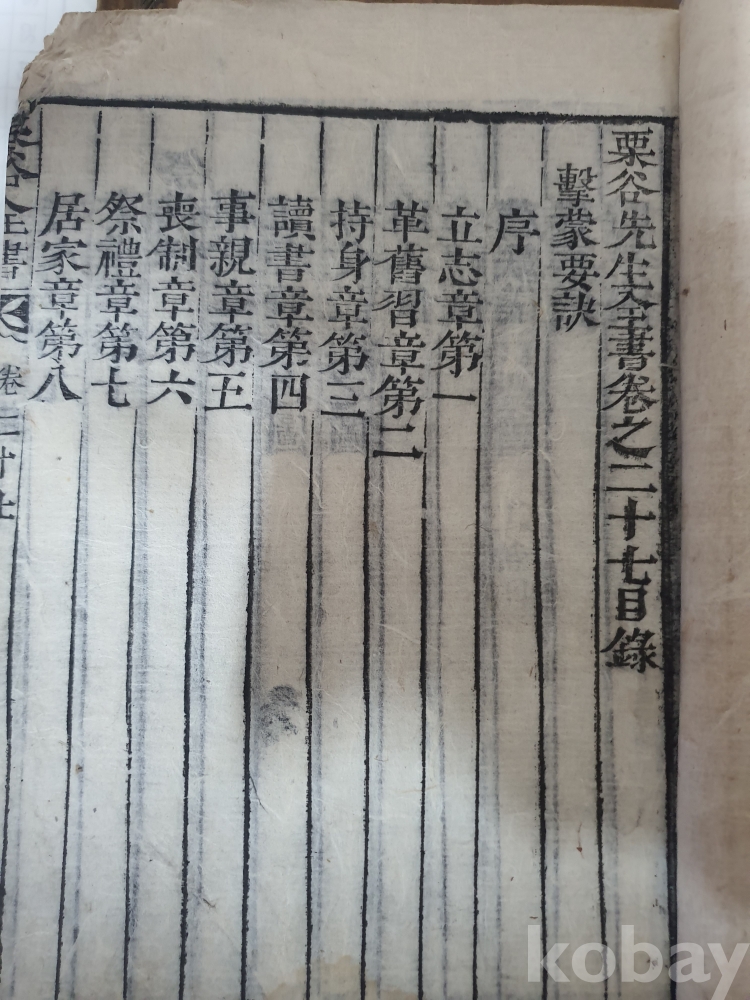 栗谷先生全書卷之二十七目錄
擊蒙要訣
序
立志章第一
革舊習章第二
持身章第三
讀書章第四
事親章第五
喪制章第六
祭禮章第七
居家章第八
栗谷全書 卷二十七
kobay